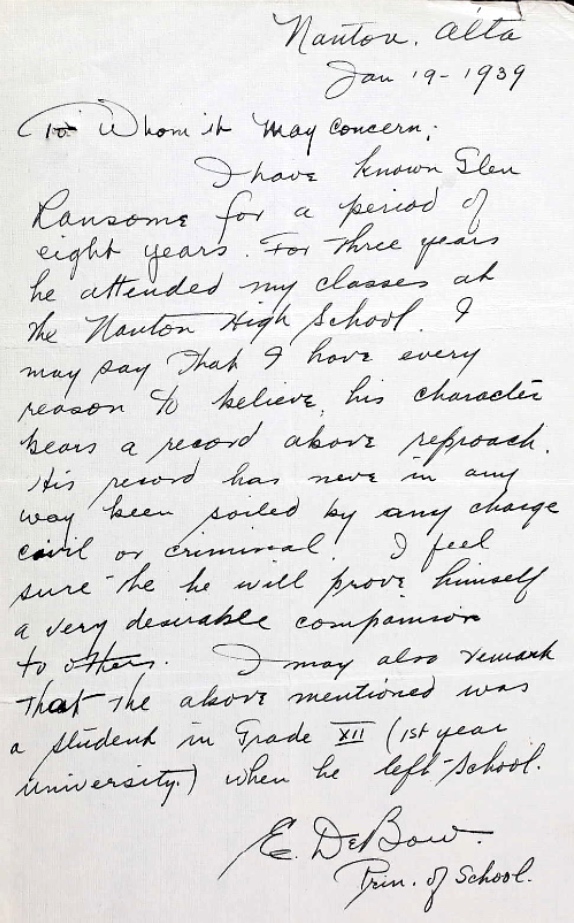 Nanton. Alta
Jan 19 - 1939
To Whom it May Concern;
I have known Glen
Ransome for a period of
eight years. For three years
he attended my classes at
the Nanton High School. I
may say that I have every
reason to believe, his character
bears a record above reproach.
His record has neve in any
way been soiled by any charge
civil or criminal. I feel
sure he he will prove himself
a very desirable companion
to others. I may also remark
that the above mentioned was
a student in Grade XII (1st year
university.) when he left school.
E. DeBow.
Prin. of School.